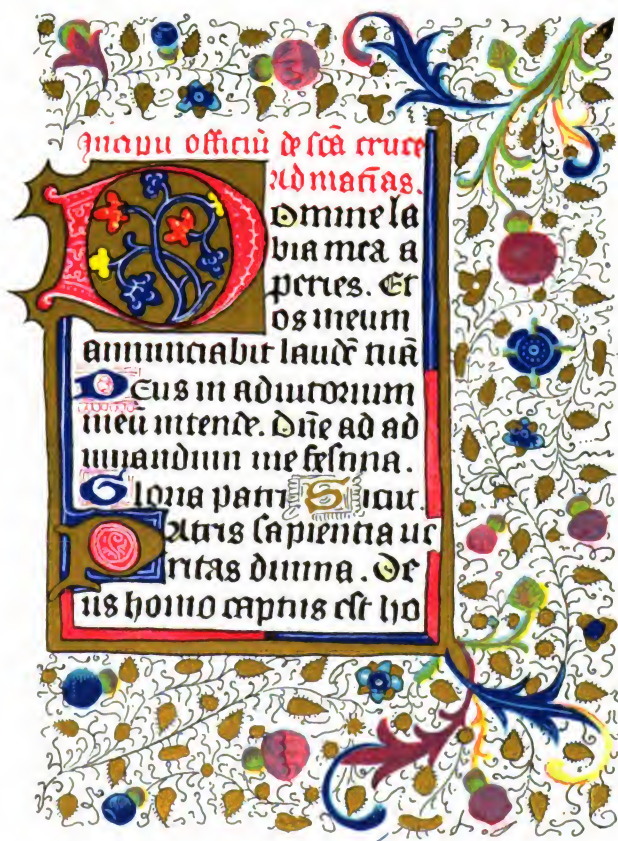 Incipit officiū de sc̄a cruce
Ad mat̄ias.
Domine la
bia mea a
peries. Et
os meum
annunciabit laudē tuā
Deus in adiutorium
meū intende. Dn̄e ad ad
iuuandum me festina.
Gloria patri Sicut.
Patris sapientia ue
ritas diuina. De
us homo captus est ho